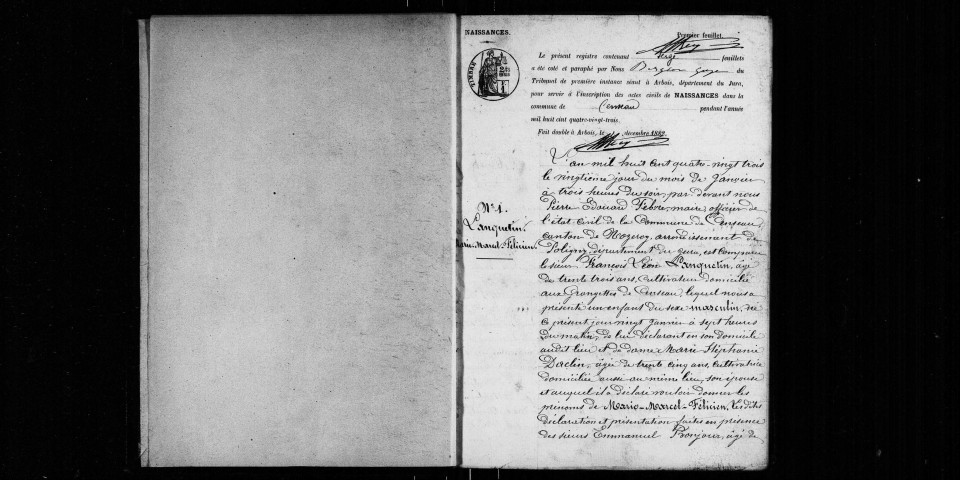 NAISSANCES.
Premier feuillet.
Le présent registre contenant feuillets
a été coté et paraphé par Nous du
Tribunal de première instance séant à Arbois, département du Jura,
pour servir à l'inscription des actes civils de NAISSANCES dans la
commune de Censeau pendant l'année
mil huit cent quatre-vingt-trois.
Fait double à Arbois, le décembre 1882.
TIMBRE
L'an mil huit cent quatre-vingt trois
le vingtième jour du mois de Janvier
à trois heures du soir, par devant nous
Pierre Edouard Febvre, maire, officier de
l'état civil de la Commune de Censeau,
canton de Nozeroy, arrondissement de
Poligny, département du Jura, est comparu
le sieur François Léon Lanquetin, âgé
de trente trois ans, cultivateur domicilié
aux Grangettes de Censeau, lequel nous a
présenté un enfant du sexe masculin, né
ce présent jour vingt Janvier à sept heures
du matin, de lui déclarant en son domicile
audit lieu et de dame Marie Stéphanie
Daclin, âgée de trente cinq ans, cultivatrice
domiciliée aussi au même lieu, son épouse
et auquel il a déclaré vouloir donner les
prénoms de Marie-Marcel-Félicien. Lesdites
déclaration et présentation faites en présence
des sieurs Emmanuel Bonjour, âgé de
N° 1.
Lanquetin
Marie-Marcel-Félicien.